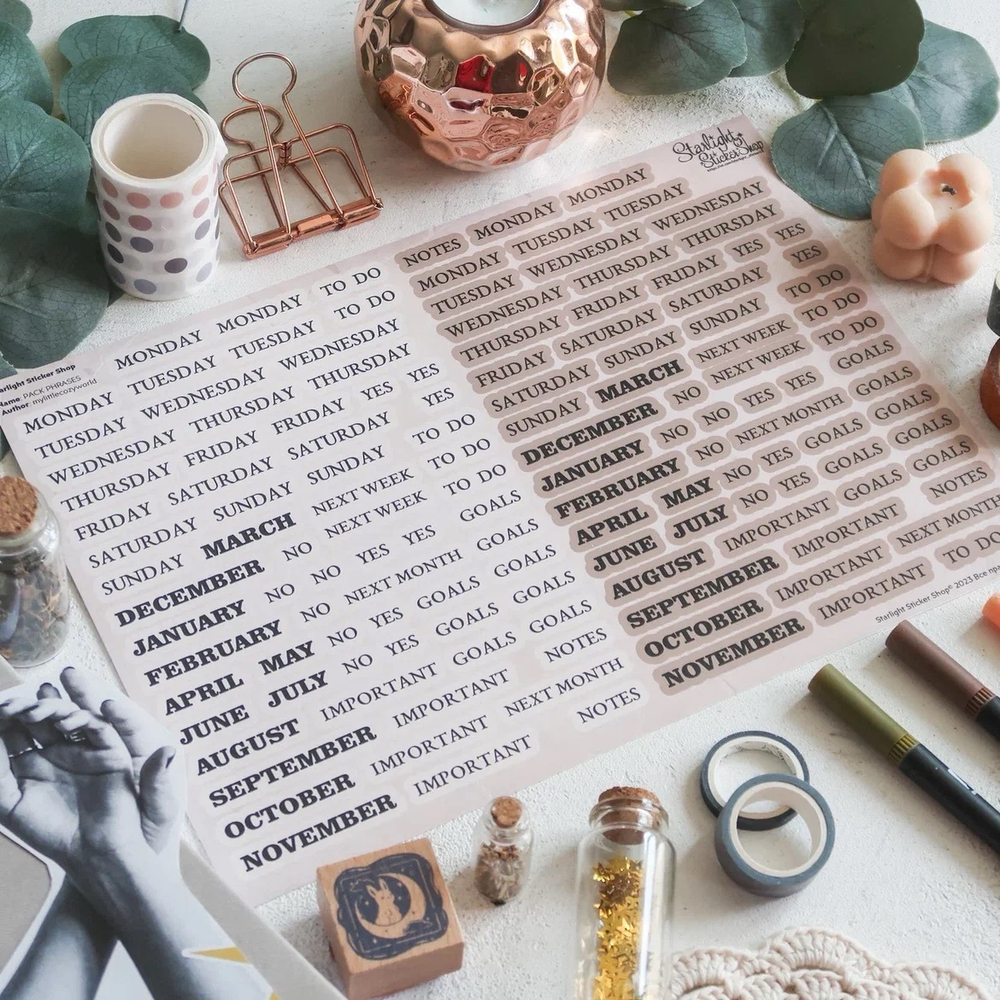 Starlight
Sticker Shop
tarlight Sticker Shop
Name: PACK PHRASES
Author: mylittlecozyworld
MONDAY MONDAY TO DO
MONDAY TUESDAY TUESDAY TO DO
TUESDAY WEDNESDAY WEDNESDAY
WEDNESDAY THURSDAY THURSDAY
THURSDAY FRIDAY FRIDAY YES YES
FRIDAY SATURDAY SATURDAY YES
SATURDAY SUNDAY SUNDAY TO DO
SUNDAY MARCH NEXT WEEK TO DO
DECEMBER NO NEXT WEEK TO DO
JANUARY NO NO YES YES GOALS
FEBRUARY NO NEXT MONTH GOALS
APRIL MAY NO YES GOALS GOALS
JUNE JULY NO YES GOALS GOALS
AUGUST IMPORTANT GOALS GOALS
SEPTEMBER IMPORTANT NOTES
OCTOBER IMPORTANT NEXT MONTH
NOVEMBER IMPORTANT NOTES
NOTES MONDAY MONDAY
MONDAY TUESDAY TUESDAY
TUESDAY WEDNESDAY WEDNESDAY
WEDNESDAY THURSDAY THURSDAY
THURSDAY FRIDAY FRIDAY YES YES
FRIDAY SATURDAY SATURDAY YES
SATURDAY SUNDAY SUNDAY TO DO
SUNDAY MARCH NEXT WEEK TO DO
DECEMBER NO NEXT WEEK TO DO
JANUARY NO NO YES YES GOALS
FEBRUARY NO NEXT MONTH GOALS
APRIL MAY NO YES GOALS GOALS
JUNE JULY NO YES GOALS GOALS
AUGUST IMPORTANT GOALS GOALS
SEPTEMBER IMPORTANT NOTES
OCTOBER IMPORTANT NEXT MONTH
NOVEMBER IMPORTANT TO DO
Starlight Sticker Shop© 2023 Все пра